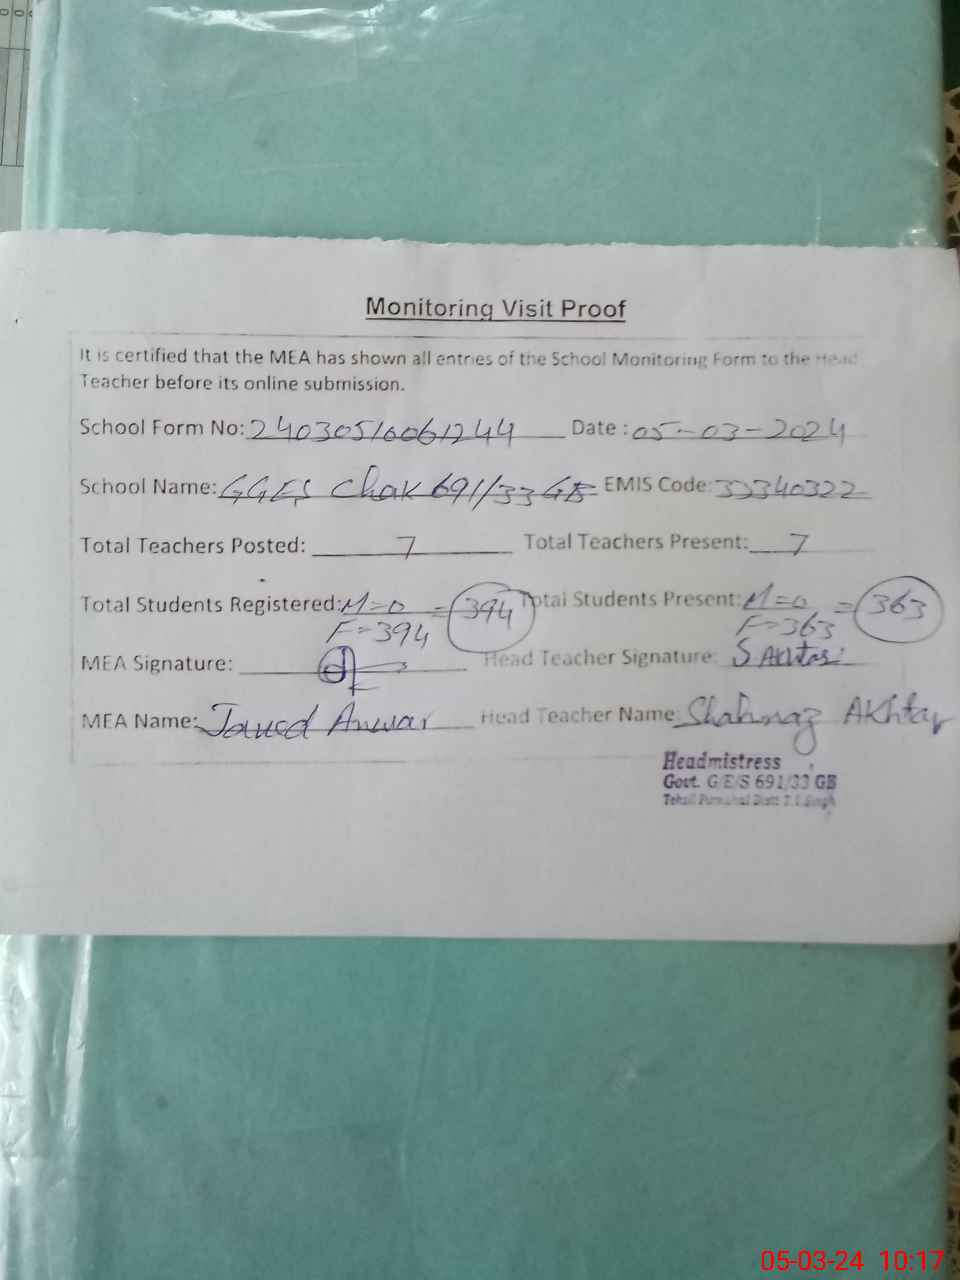 Monitoring Visit Proof
It is certified that the MEA has shown all entries of the School Monitoring Form to the Head
Teacher before its online submission.
School Form No: 24030510061244 Date : 05-03-2024
School Name: GGES Chak 691/33 GB EMIS Code: 33340322
Total Teachers Posted: 7 Total Teachers Present: 7
Total Students Registered: M=0 = 394 Total Students Present: M=0 = 363
F=394 F=363
MEA Signature: Head Teacher Signature: S Akhtar
MEA Name: Javed Anwar Head Teacher Name Shahnaz Akhtar
Headmistress
Govt. G/E/S 691/33 GB
Tehsil Distt T.T.Singh
05-03-24 10:17